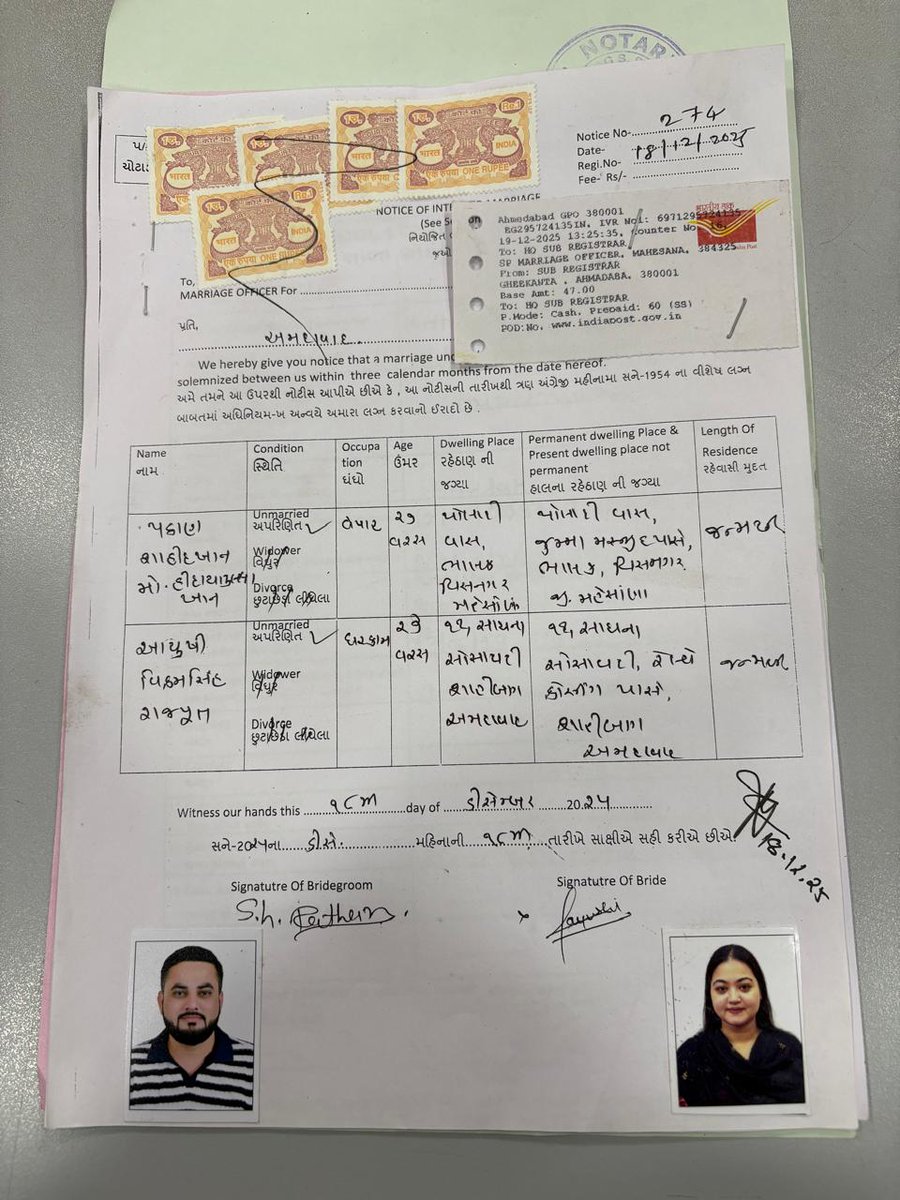 NOTAR
G.S.
પ/
ચોટાડ
1રૂ. Re.1
भारत INDIA
एक रुपया ONE RUPEE
Notice No- 274
Date- 18/12/2025
Regi.No-
Fee- Rs/-
NOTICE OF INTE MARRIAGE
(See Se
નિયોજિત
જુઓ
Ahmedabad GPO 380001
EG295724135IN, IVR No1: 6971295724135
19-12-2025 13:25:35, Counter No 16,
To: HQ SUB REGISTRAR
SP MARRIAGE OFFICER, MAHESANA, 384325
From: SUB REGISTRAR
GHEEKANTA , AHMADABA, 380001
Base Amt: 47.00
To: HQ SUB REGISTRAR
P.Mode: Cash, Prepaid: 60 (SS)
POD:No, www.indiapost.gov.in
भारतीय डाक
India Post
To,
MARRIAGE OFFICER For
પ્રતિ,
અમદાવાદ.
We hereby give you notice that a marriage und
solemnized between us within three calendar months from the date hereof.
અમે તમને આ ઉપરથી નોટીસ આપીએ છીએ કે , આ નોટીસની તારીખથી ત્રણ અંગ્રેજી મહીનામા સને-1954 ના વીશેષ લગ્ન
બાબતમાં અધિનિયમ-ખ અન્વયે અમારા લગ્ન કરવાનો ઈરાદો છે .
Name
નામ.
Condition
સ્થિતિ
Occupa
tion
ધંધો
Age
ઉંમર
Dwelling Place
રહેઠાણ ની
જગ્યા
Permanent dwelling Place &
Present dwelling place not
permanent
હાલના રહેઠાણ ની જગ્યા
Length Of
Residence
રહેવાસી મુદત
પઠાણ
શાહીદખાન
મો.
ખાન
Unmarried
અપરિણિત
Widower
વિધુર
Divorce
છુટાછેડા લીધેલા
વેપાર
૨૭
વરસ
વાસ,
ભાલક
વિસનગર
મહેસાણા
વાસ,
જુમ્મા મસ્જીદ પાસે,
ભાલક, વિસનગર
જી. મહેસાણા
જન્મથી
આયુષી
વિક્રમસિંહ
રાજપૂત
Unmarried
અપરિણિત
Widower
વિધુર
Divorce
છુટાછેડા લીધેલા
ઘરકામ
વરસ
૧૧, સાધના
સોસાયટી
શાહીબાગ
અમદાવાદ
૧૧, સાધના
સોસાયટી, રેલ્વે
ક્રોસીંગ પાસે,
શાહીબાગ
અમદાવાદ
જન્મથી
Witness our hands this ૧૮મી day of ડીસેમ્બર 20.૨૫
સને-20૨૫ના ડીસે. મહિનાની ૧૮મી તારીખે સાક્ષીએ સહી કરીએ છીએ.
18.12.25
Signatutre Of Bridegroom
Signatutre Of Bride
S.h. Pathan.
Aayushi